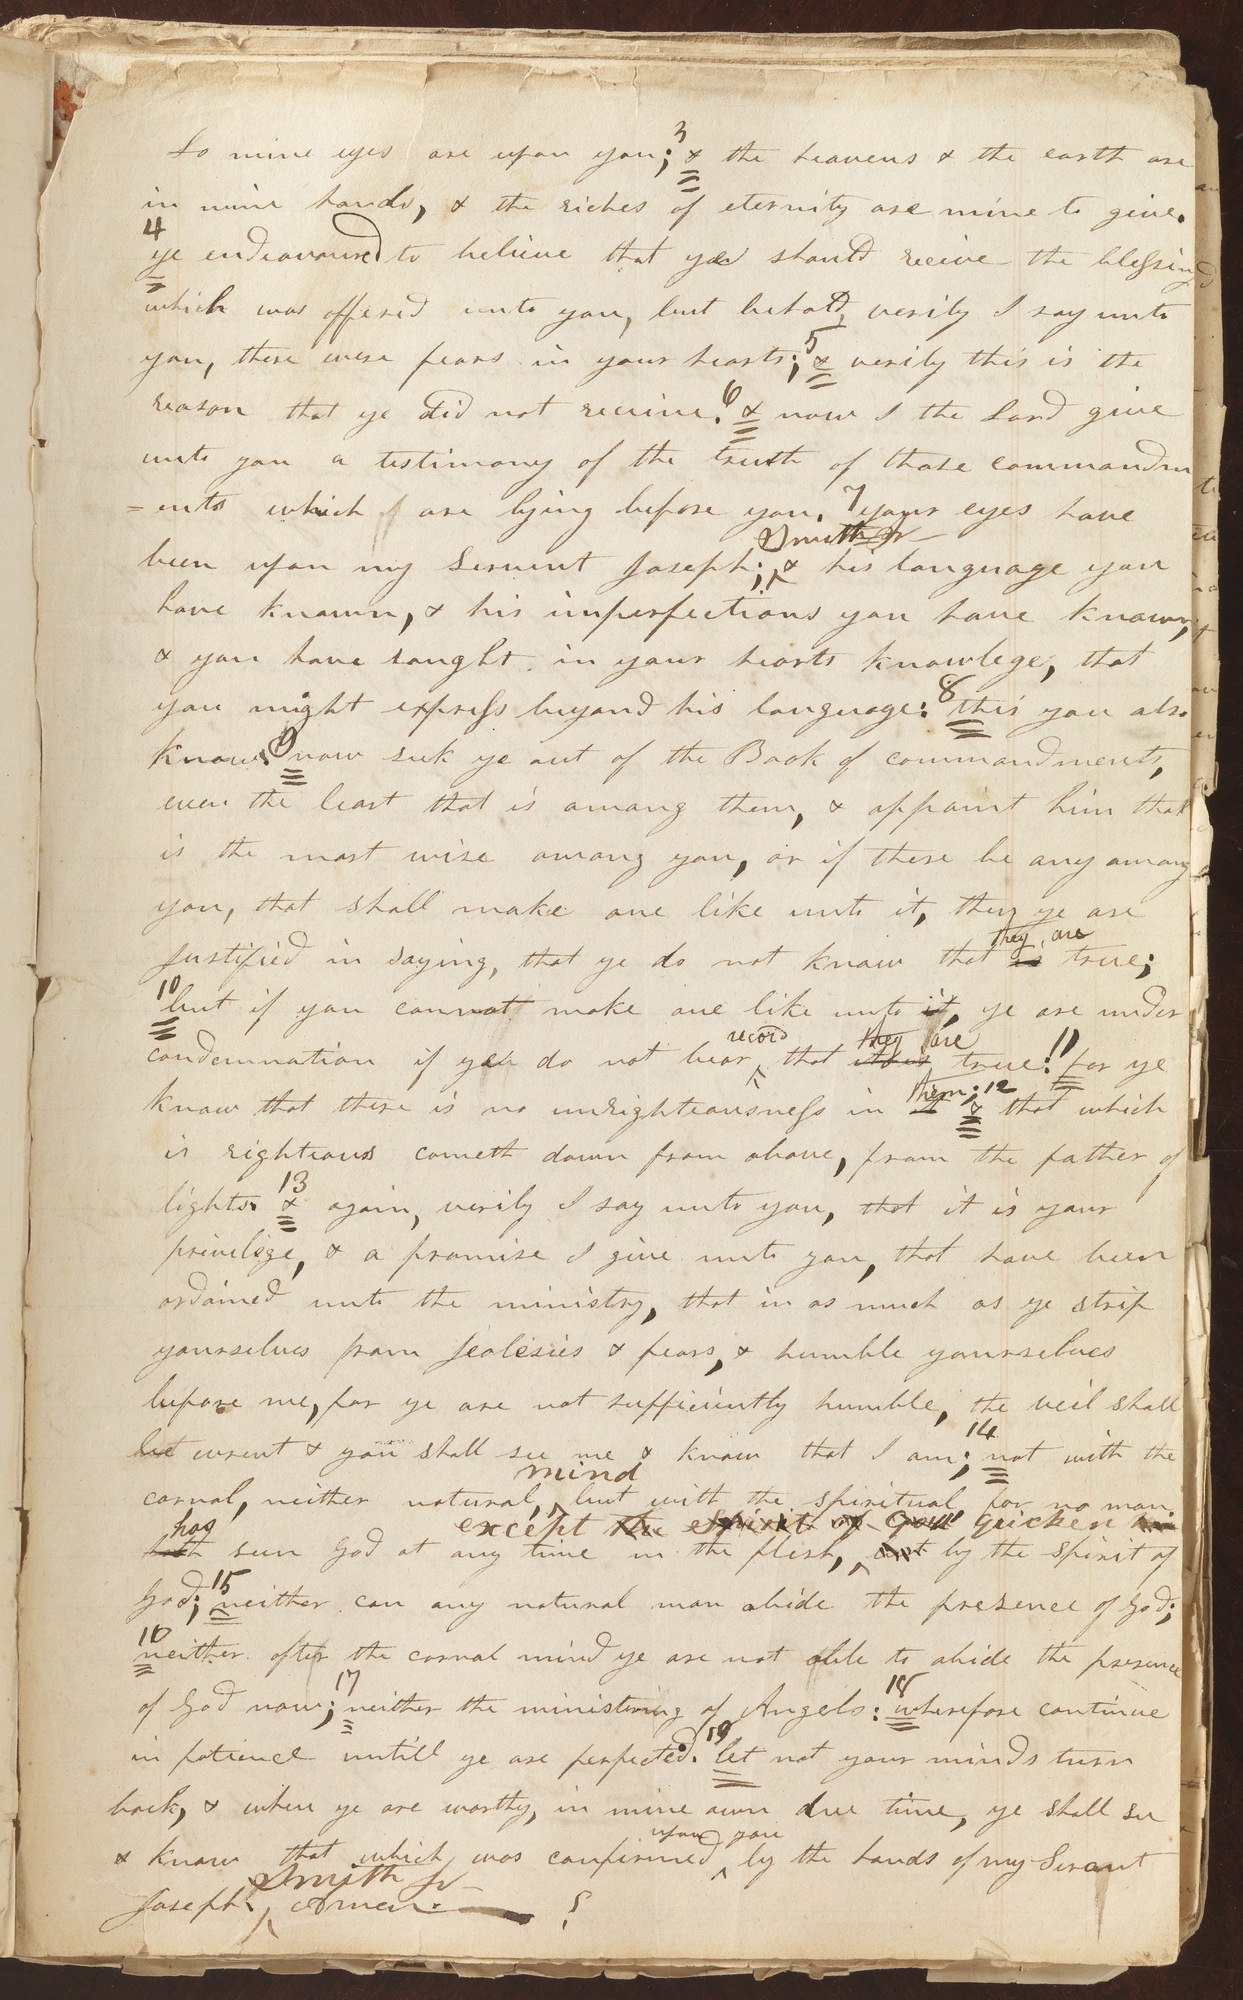 Lo mine eyes are upon you; 3 & the heavens & the earth are
in mine hands, & the riches of eternity are mine to give.
4 ye endeavoured to believe that ye should receive the blessing
which was offered unto you, but behold, verily I say unto
you, there were fears in your hearts; 5 & verily this is the
reason that ye did not receive. 6 & now I the Lord give
unto you a testimony of the truth of those commandm
=ents which are lying before you. 7 your eyes have
Smith Jr
been upon my Servent Joseph; ^ & his language you
have known, & his imperfections you have known,
& you have saught in your hearts knowlege, that
you might express beyond his language: 8 this you also
know. 9 now seek ye out of the Book of commandments,
even the least that is among them, & appoint him that
is the most wise among you, or if there be any among
you, that shall make one like unto it, then ye are
they are
Justified in saying, that ye do not know that is true;
10 but if you cannot make one like unto it, ye are under
record they are
condemnation if ye do not bear ^ that it is true: 11 for ye
them; 12
know that there is no unrighteousness in it & that which
is righteous cometh down from above, from the father of
lights. 13 & again, verily I say unto you, that it is your
privilege, & a promise I give unto you, that have been
ordained unto the ministry, that in as much as ye strip
yourselves from Jealesies & fears, & humble yourselves
before me, for ye are not sufficiently humble, the veil shall
be wrent & you shall see me & know that I am; 14 not with the
mind
carnal, neither natural, ^ but with the spiritual, for no man
has except the Spirit of God quicken him
hath seen God at any time in the flesh, ^ but by the Spirit of
God; 15 neither can any natural man abide the presence of God;
16 neither after the carnal mind ye are not able to abide the presence
of God now; 17 neither the ministering of Angels: 18 wherefore continue
in patience untill ye are perfected. 19 let not your minds turn
back, & when ye are worthy, in mine own due time, ye shall see
upon you
& know that which was confirmed ^ by the hands of my Servant
Smith Jr
Joseph ^ Amen.